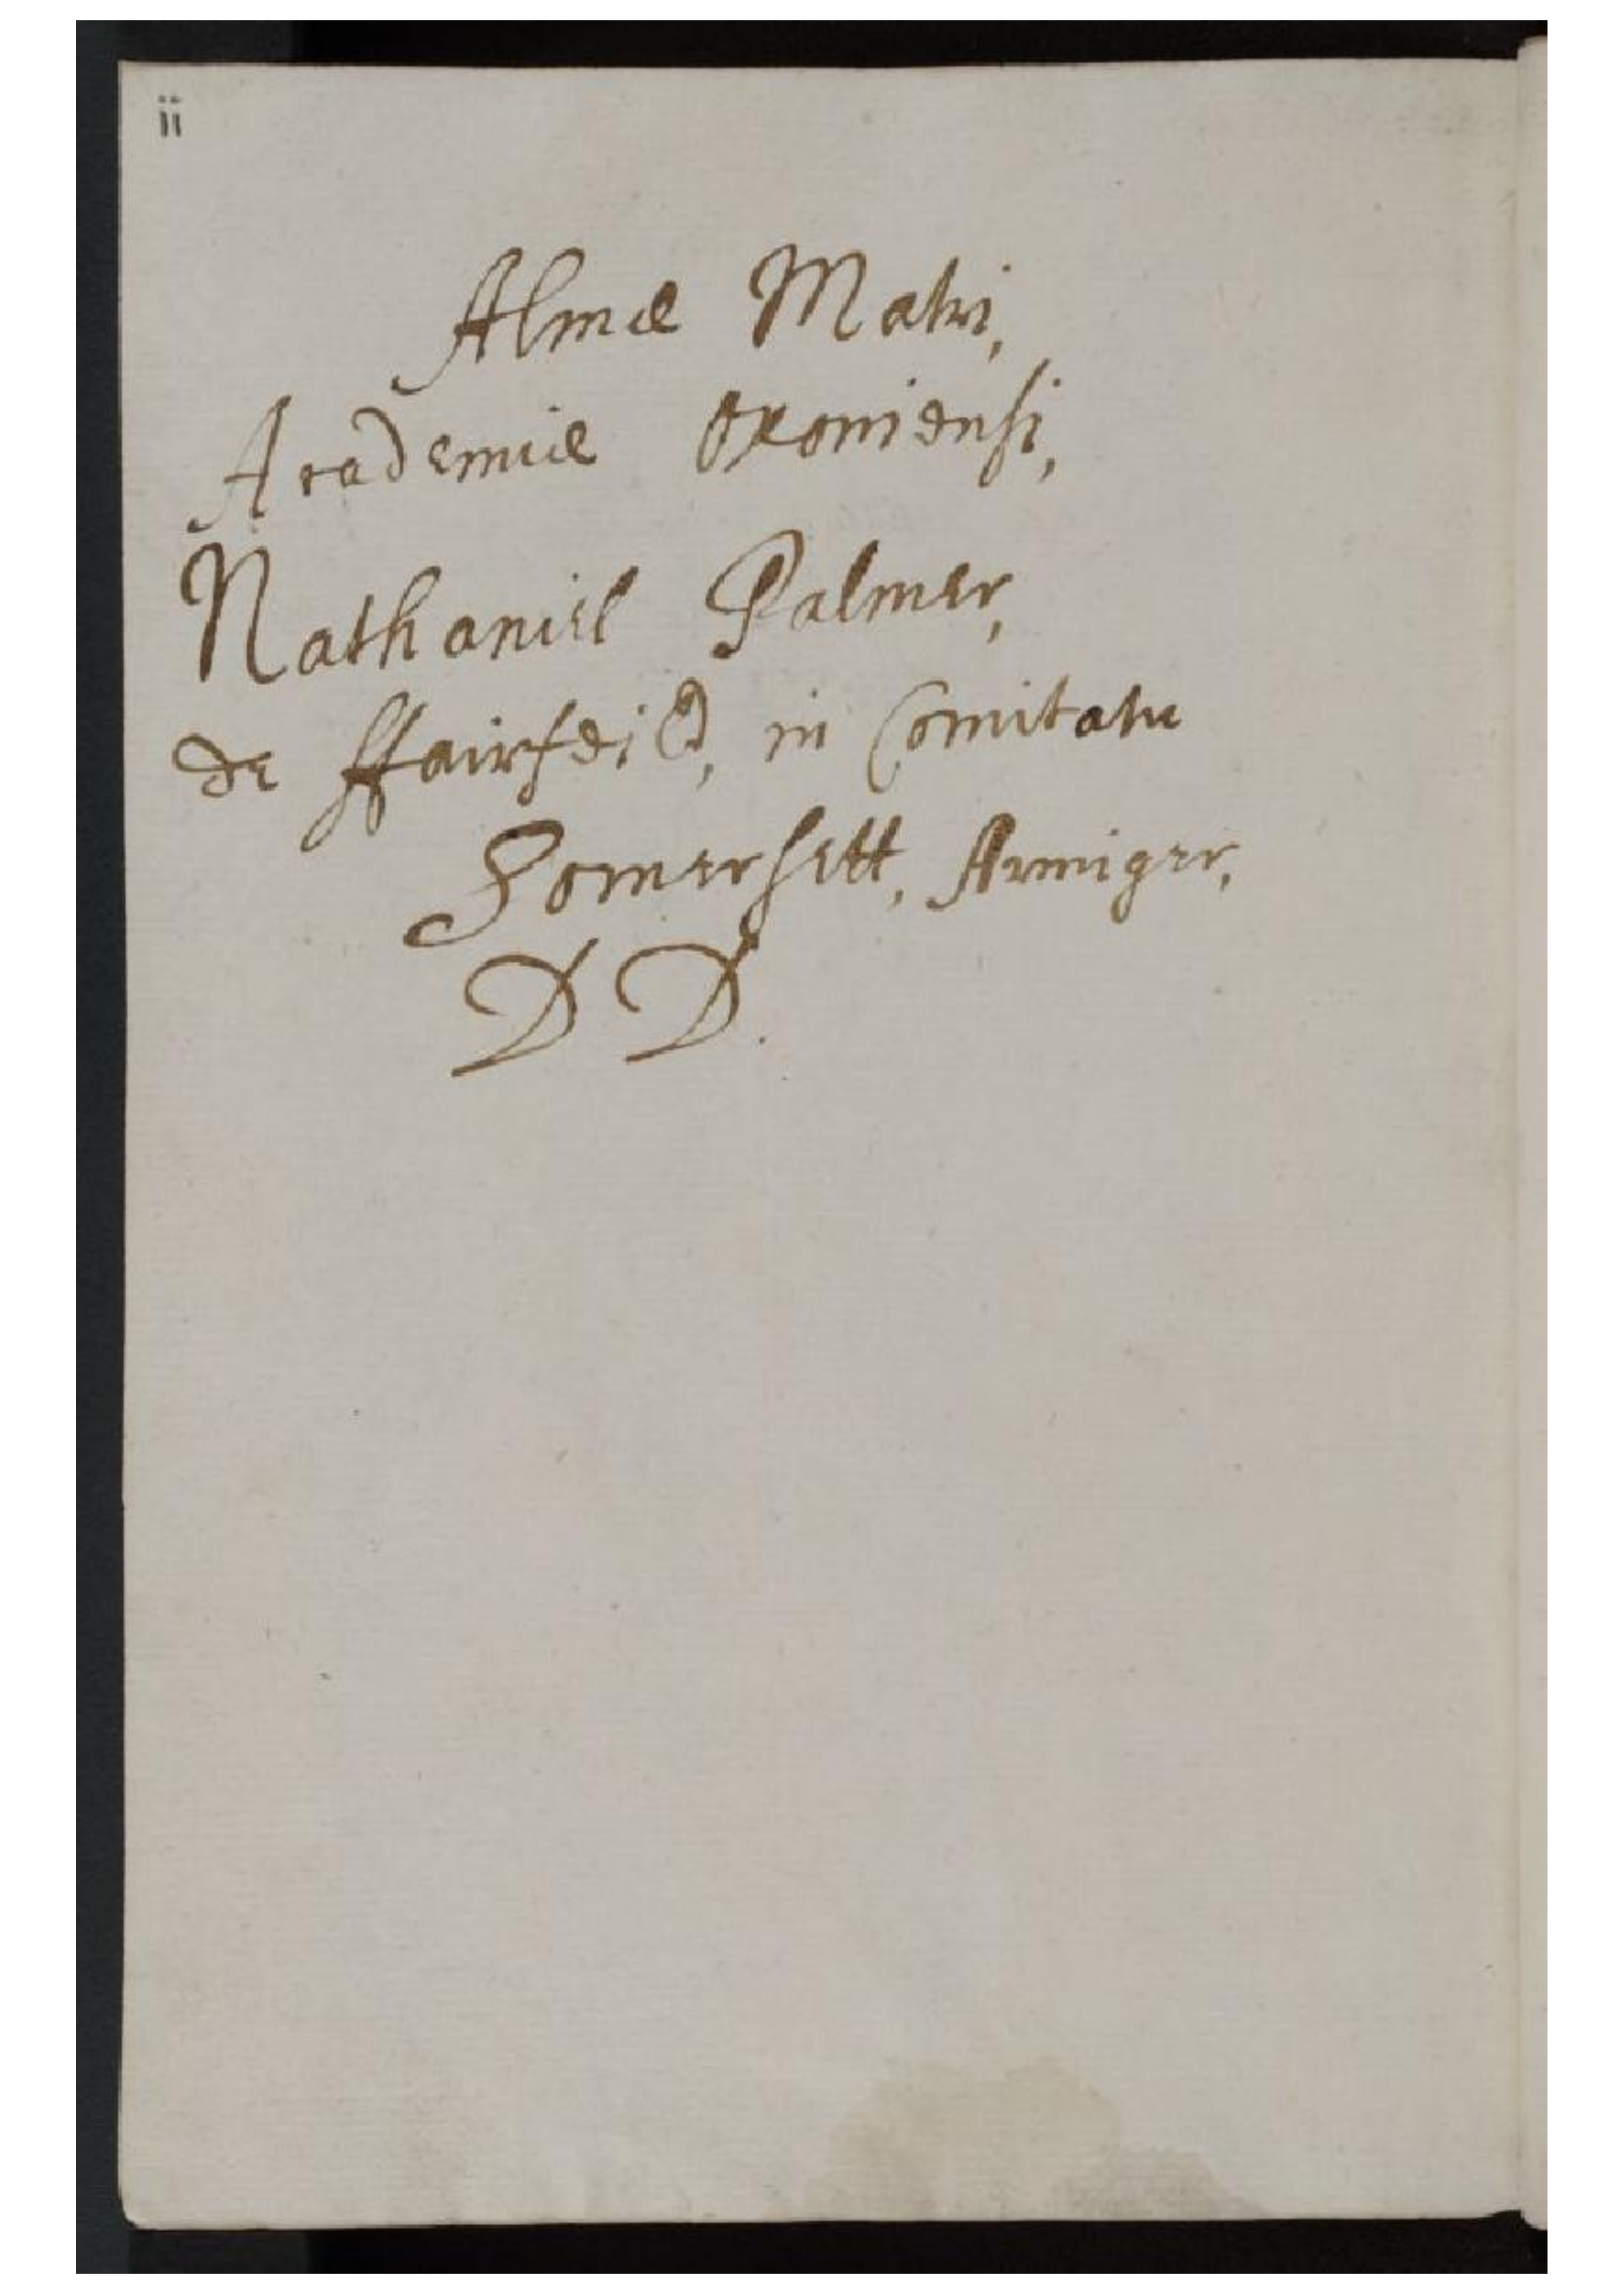 ii
Almæ Matri,
Academiæ Oxoniensi,
Nathaniel Palmer,
de ffairfeild, in Comitatu
Somersett, Armiger,
D D.